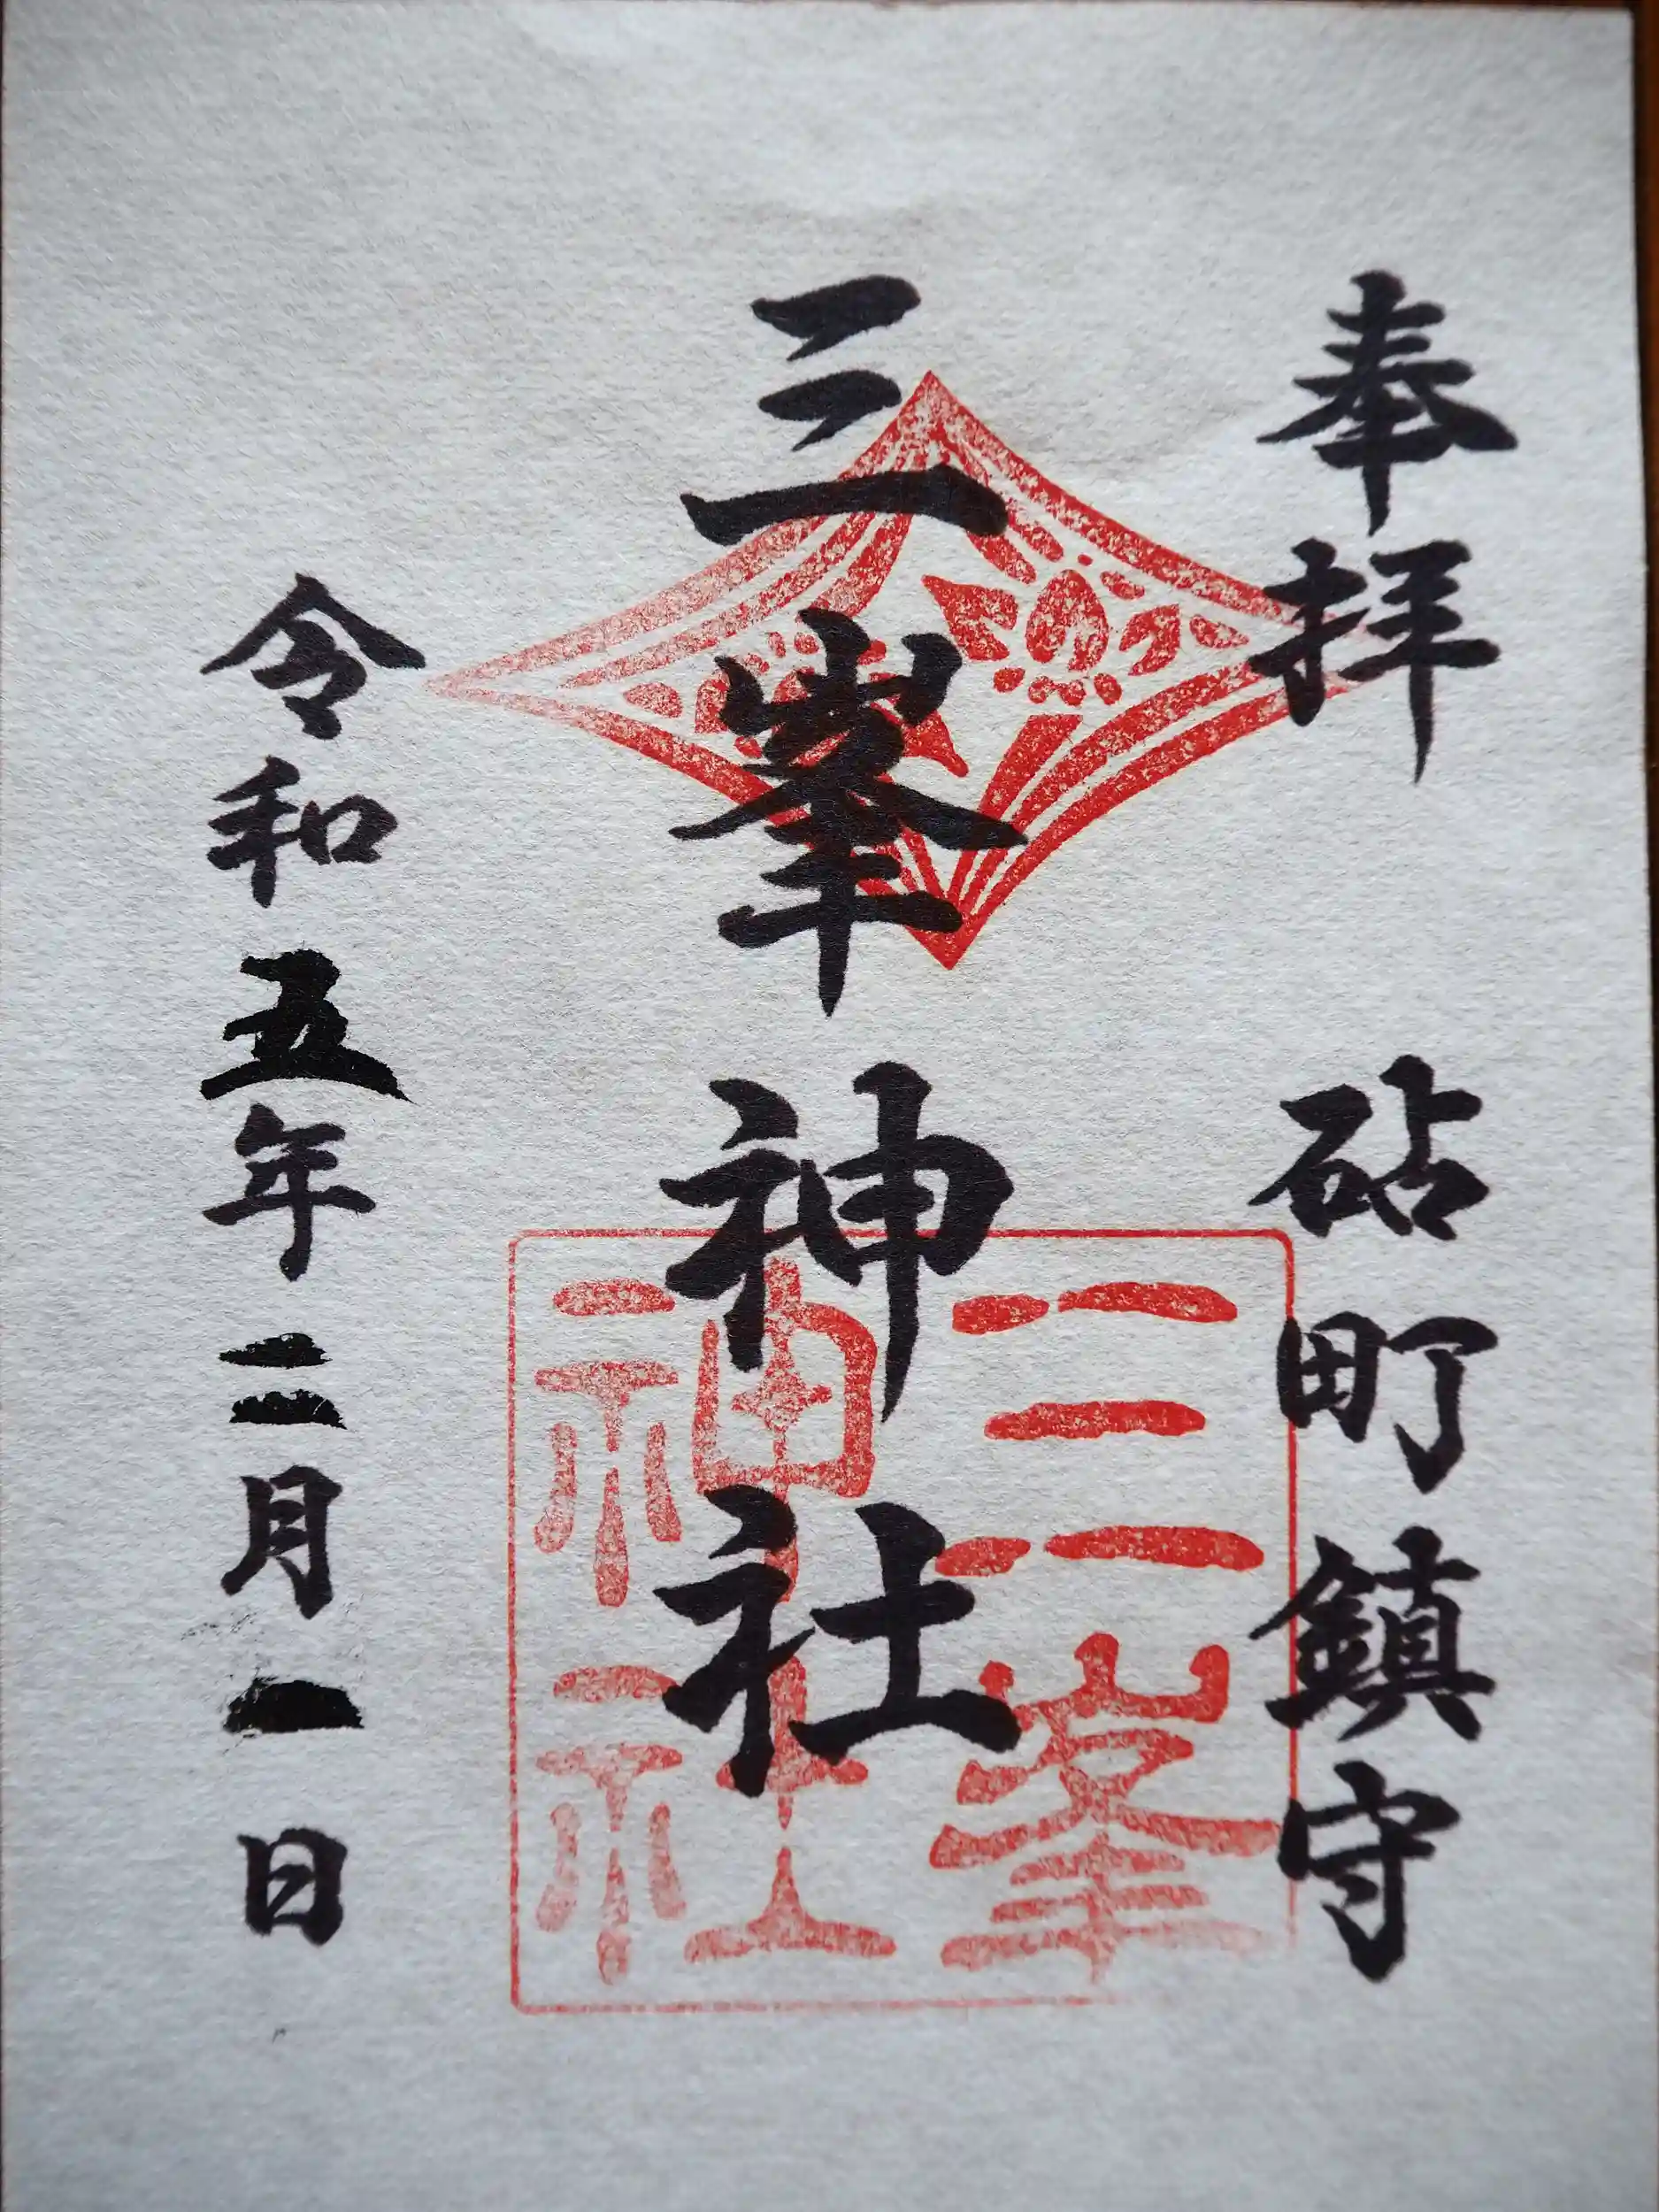 奉拝 砧町鎮守
三峯神社
三峯
神社
令和五年二月一日